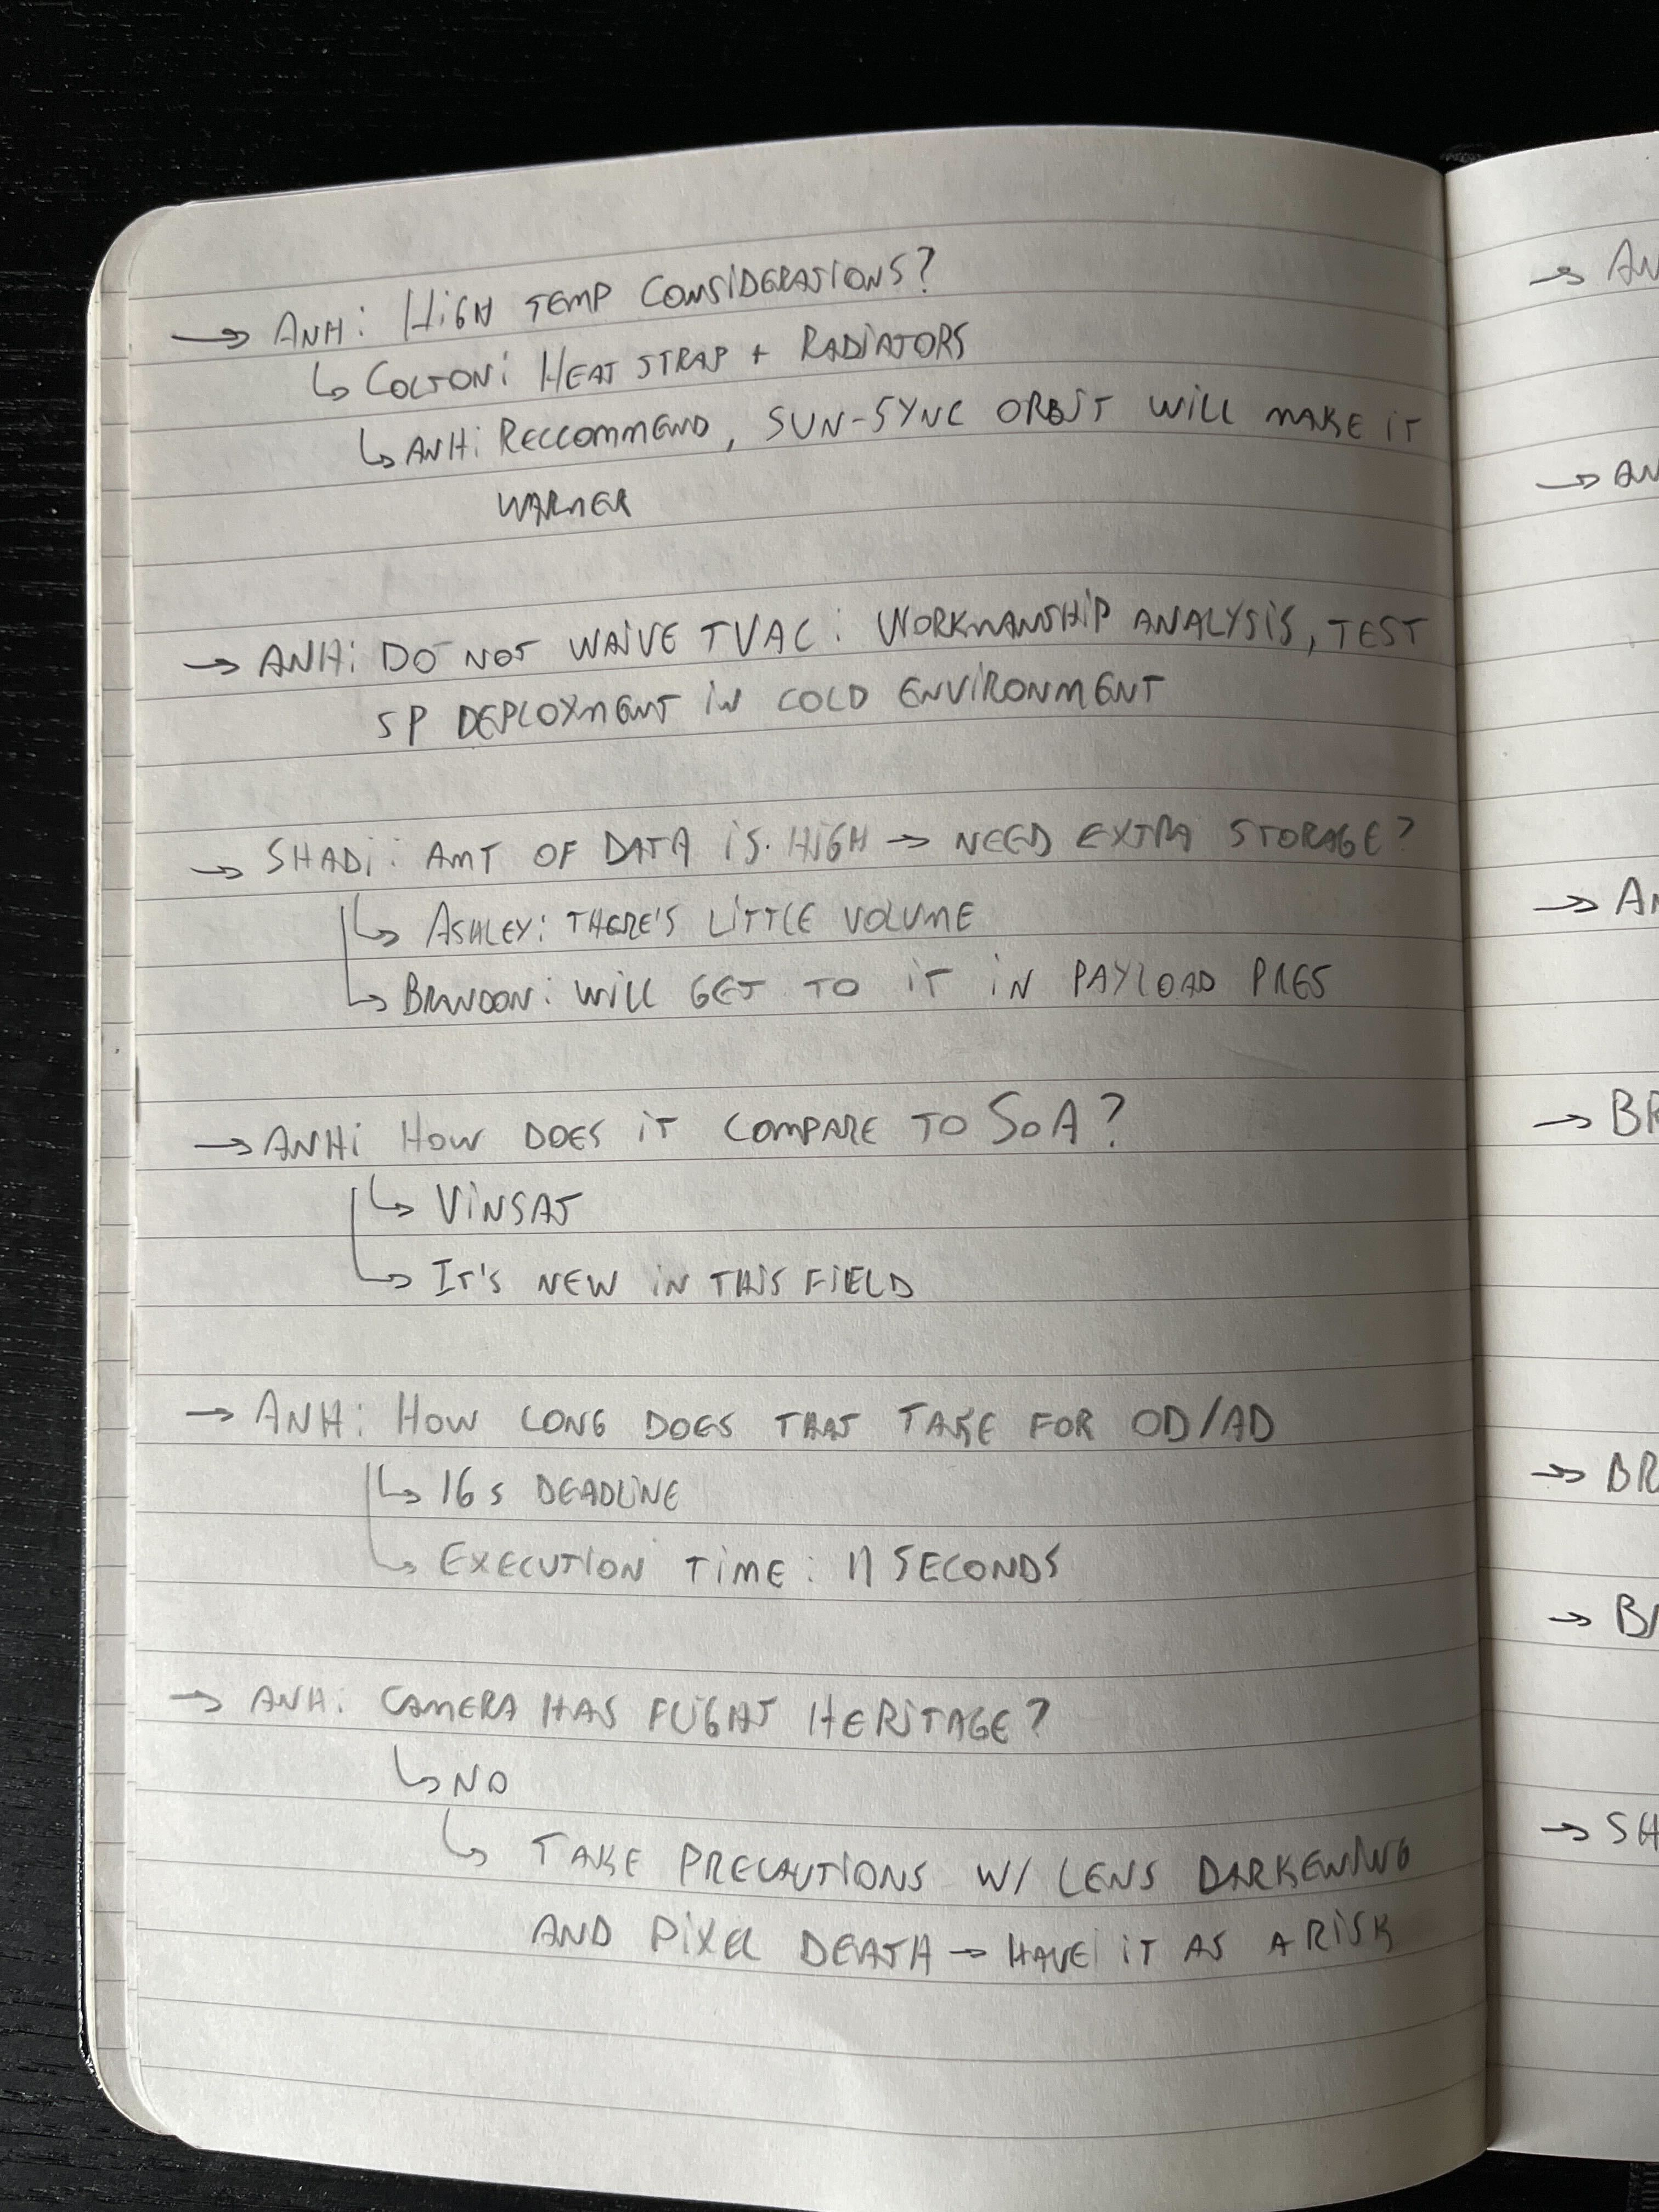 → ANH: HIGH TEMP CONSIDERATIONS?
↳ COLTON: HEAT STRAP + RADIATORS
↳ ANH: RECCOMMEND, SUN-SYNC ORBIT WILL MAKE IT
WARMER
→ ANH: DO NOT WAIVE TVAC: WORKMANSHIP ANALYSIS, TEST
SP DEPLOYMENT IN COLD ENVIRONMENT
→ SHADI: AMT OF DATA IS HIGH → NEED EXTRA STORAGE?
↳ ASHLEY: THERE'S LITTLE VOLUME
↳ BRANDON: WILL GET TO IT IN PAYLOAD PRES
→ ANH: HOW DOES IT COMPARE TO SOA?
↳ VINSAT
↳ IT'S NEW IN THIS FIELD
→ ANH: HOW LONG DOES THAT TAKE FOR OD/AD
↳ 16 s DEADLINE
↳ EXECUTION TIME: 11 SECONDS
→ ANH: CAMERA HAS FLIGHT HERITAGE?
↳ NO
↳ TAKE PRECAUTIONS W/ LENS DARKENING
AND PIXEL DEATH → HAVE IT AS A RISK
→ AN
→ AN
→ AN
→ BR
→ BR
→ SH